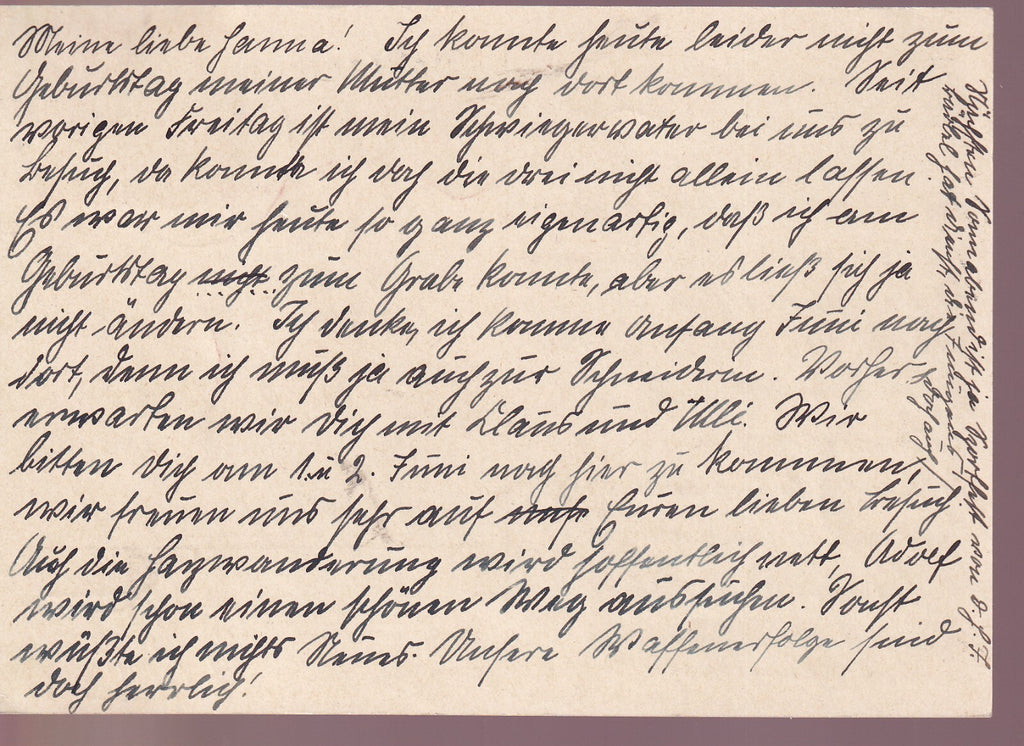 Meine liebe Hanna! Ich konnte heute leider nicht zum
Geburtstag meiner Mutter nach dort kommen. Seit
vorigen Freitag ist mein Schwiegervater bei uns zu
Besuch, da konnte ich doch die drei nicht allein lassen.
Es war mir heute so ganz eigenartig, daß ich am
Geburtstag nicht zum Grabe konnte, aber es ließ sich ja
nicht ändern. Ich denke, ich komme Anfang Juni nach
dort, denn ich muß ja auch zur Schneiderin. Vorher
erwarten wir Dich mit Claus und Ulli. Wir
bitten Dich am 1. u 2. Juni nach hier zu kommen,
wir freuen uns sehr auf Euren lieben Besuch
Auch die Harzwanderung wird hoffentlich nett, Adolf
wird schon einen schönen Weg aussuchen. Sonst
wüßte ich nichts Neues. Unsere Waffenerfolge sind
doch herrlich!
Nächsten Sonnabend ist ja Sportfest von d. H. J.